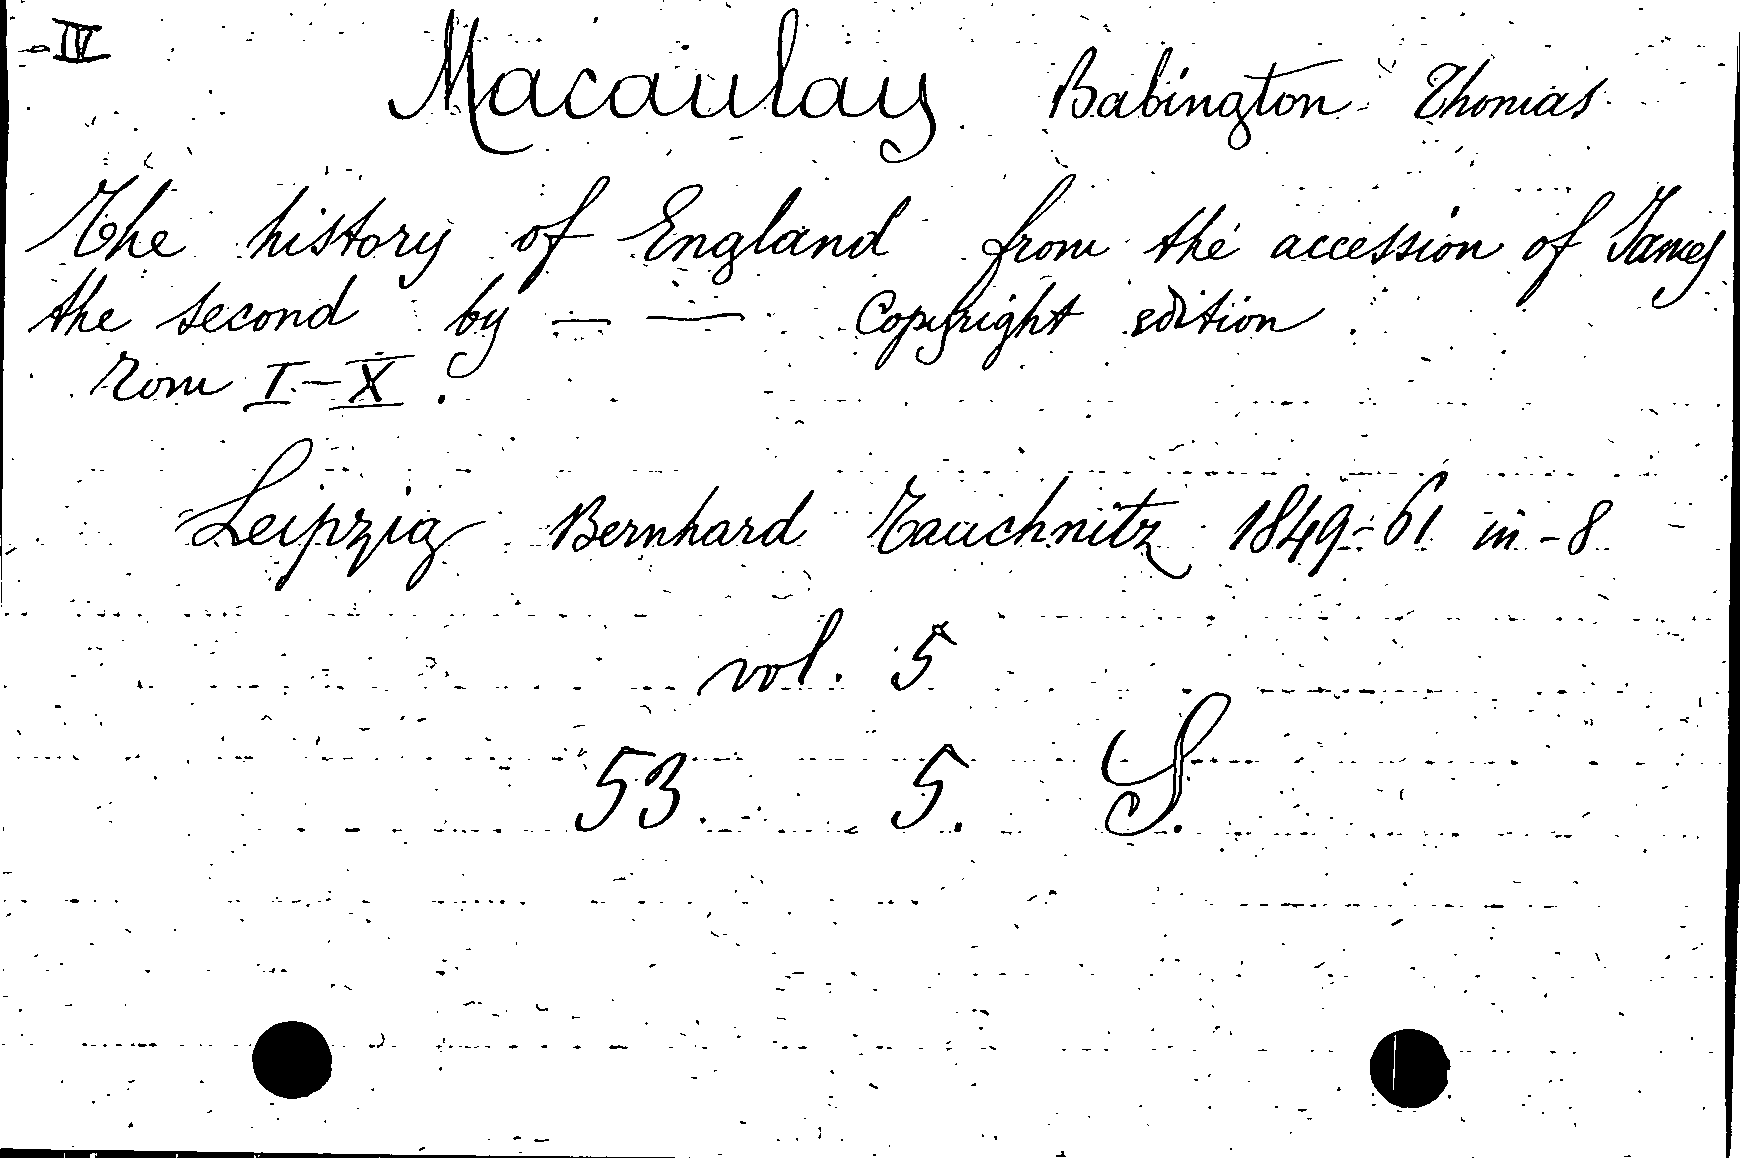 -IV
Macaulay Babington Thomas
The history of England from the accession of James
the second by — — Copyright edition.
Tom I-X.
Leipzig Bernhard Tauchnitz 1849-61 in-8
vol. 5
53. 5. S.